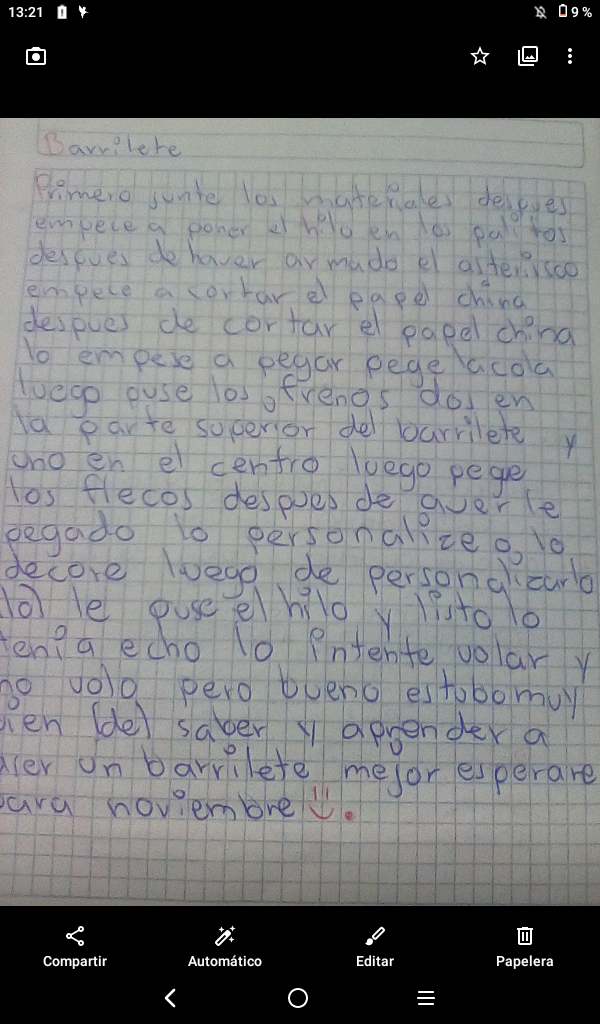 13:21
9 %
Barrilete
Primero junte los materiales despues
empece a poner el hilo en los palitos
despues de haver armado el asterisco
empece a cortar el papel china
despues de cortar el papel china
lo empese a pegar pege la cola
luego puse los frenos dos en
la parte superior del barrilete y
uno en el centro luego pege
los flecos despues de aver le
pegado lo personalize o lo
decore luego de personalizarlo
(lo) le puse el hilo y listo lo
tenia echo lo intente volar y
no volo pero bueno estubo muy
bien (de) saber y aprender a
aser un barrilete mejor esperare
para noviembre
Compartir
Automático
Editar
Papelera